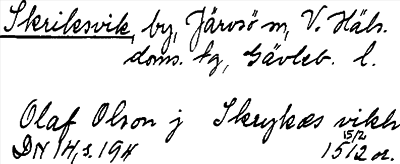 Skriksvik, by, Järvsö sn, V. Häls.
doms. tg, Gävleb. l.
Olaf Olson j Skrykæs vikh
DN 14, s. 194 15/2 1512 or.